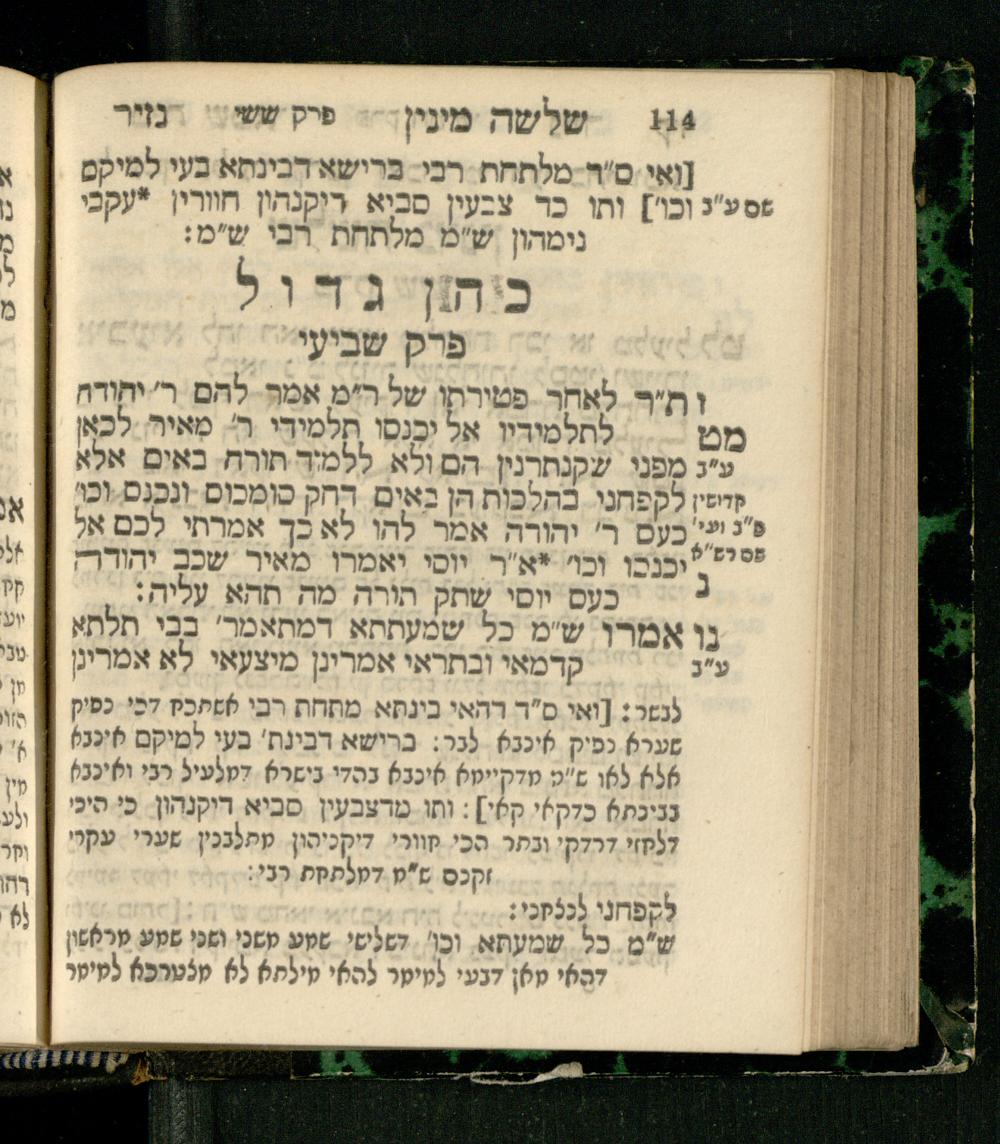 114 שלשה מינין פרק ששי נזיר
[ואי ס״ד מלתחת רבי ברישא דבינתא בעי למיקם
שם ע״ב וכו׳] ותו כד צבעין סביא דיקנהון חוורין *עקבי
נימהון ש״מ מלתחת רבי ש״מ:
כהן גדול
פרק שביעי
ז ת״ר לאחר פטירתו של ר״מ אמר להם ר׳ יהודה
מט לתלמידיו אל יכנסו תלמידי ר׳ מאיר לכאן
ע״ב מפני שקנתרנין הם ולא ללמוד תורה באים אלא
קדושין לקפחני בהלכות הן באים דחק סומכוס ונכנס וכו׳
פ״ב ועי׳ כעס ר׳ יהודה אמר להו לא כך אמרתי לכם אל
שם רש״א יכנסו וכו׳ *א״ר יוסי יאמרו מאיר שכב יהודה
נ כעס יוסי שתק תורה מה תהא עליה:
נו אמרו ש״מ כל שמעתתא דמתאמר׳ בבי תלתא
ע״ב קדמאי ובתראי אמרינן מיצעאי לא אמרינן
לבשר: [ואי ס״ד דהאי בינתא מתחת רבי אשתכח דכי נפיק
שערא נפיק אינבא לבר: ברישא דבינת׳ בעי למיקם אינבא
אלא לאו ש״מ מדקיימא אינבא בהדי בישרא דמלעיל רבי ואינבא
בבינתא כדקאי קאי]: ותו מדצבעין סביא דיקנהון כי היכי
דלחזי דרדקי ובתר הכי חוורי דיקניהון מתלבנין שערי עקרי
זקנם ש״מ דמלתחת רבי:
לקפחני לנלחני:
ש״מ כל שמעתא וכו׳ דשלישי שמע משני ושני שמע מראשון
דהאי מאן דבעי למימר להאי מילתא לא מצטרכא למימר